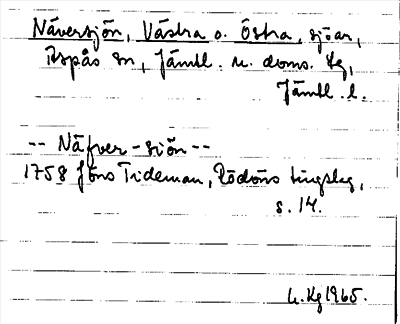 Näversjön, Västra o. Östra, sjöar,
Aspås sn, Jämtl. n. doms. tg,
Jämtl. l.
-- Näfver-siön --
1758 Jöns Tideman, Rödöns tingslag,
s. 14.
Kg 1965.